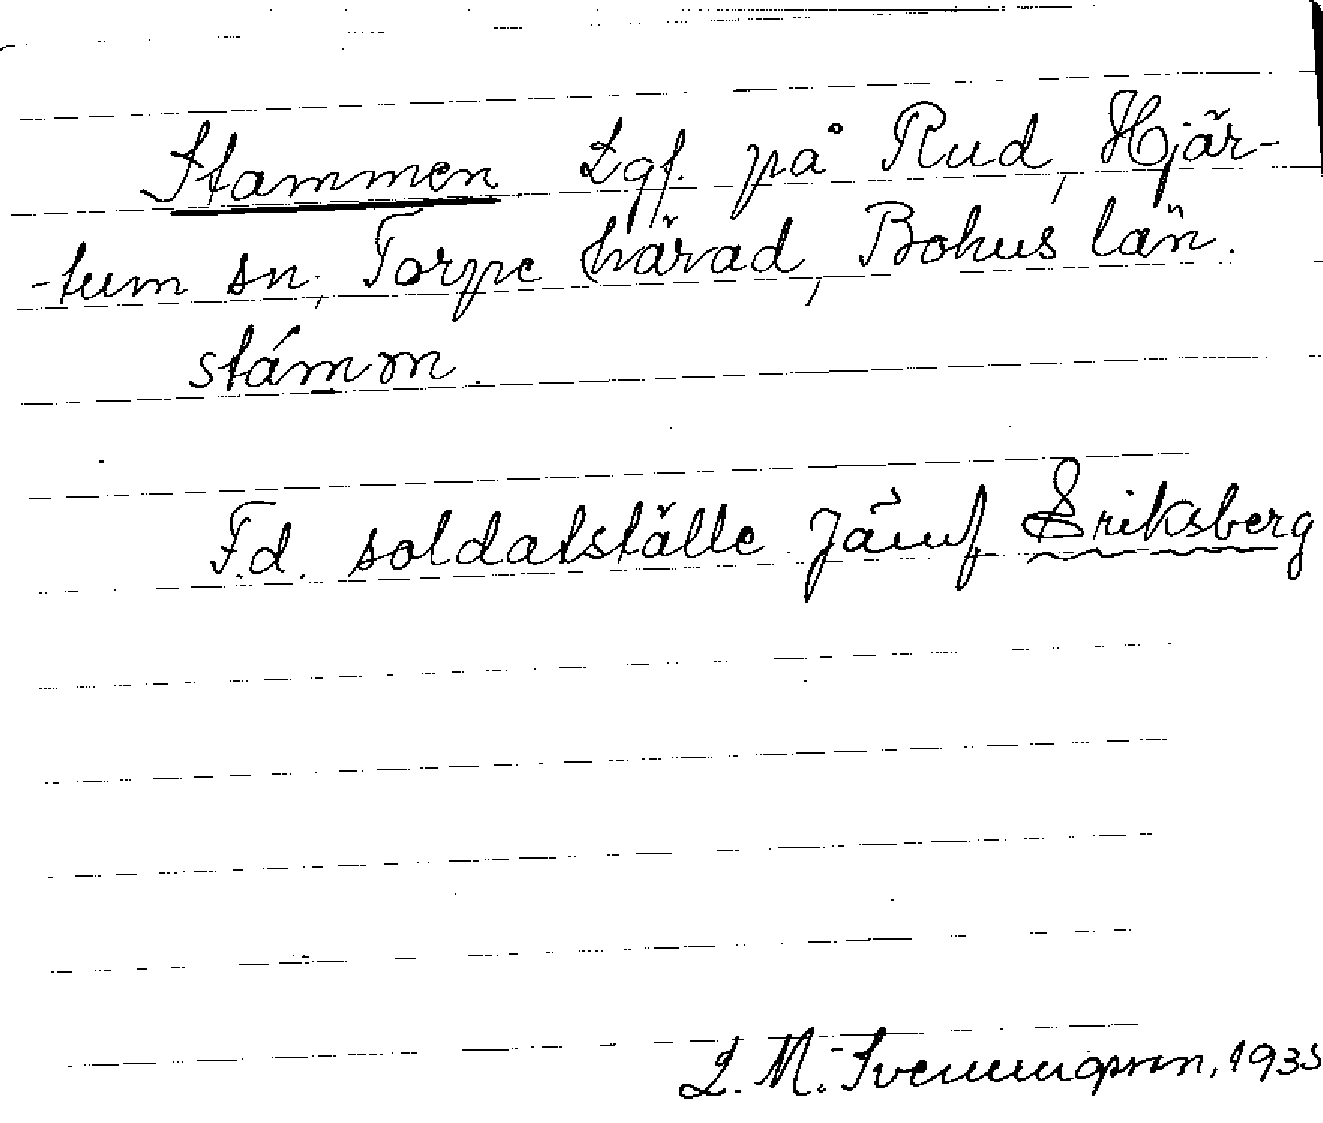 Stammen Lgf. på Rud, Hjär-
-tum sn, Torpe härad, Bohus län.
stám m.
F.d. soldatställe jämf Eriksberg
L. M. Svenungsson, 1935